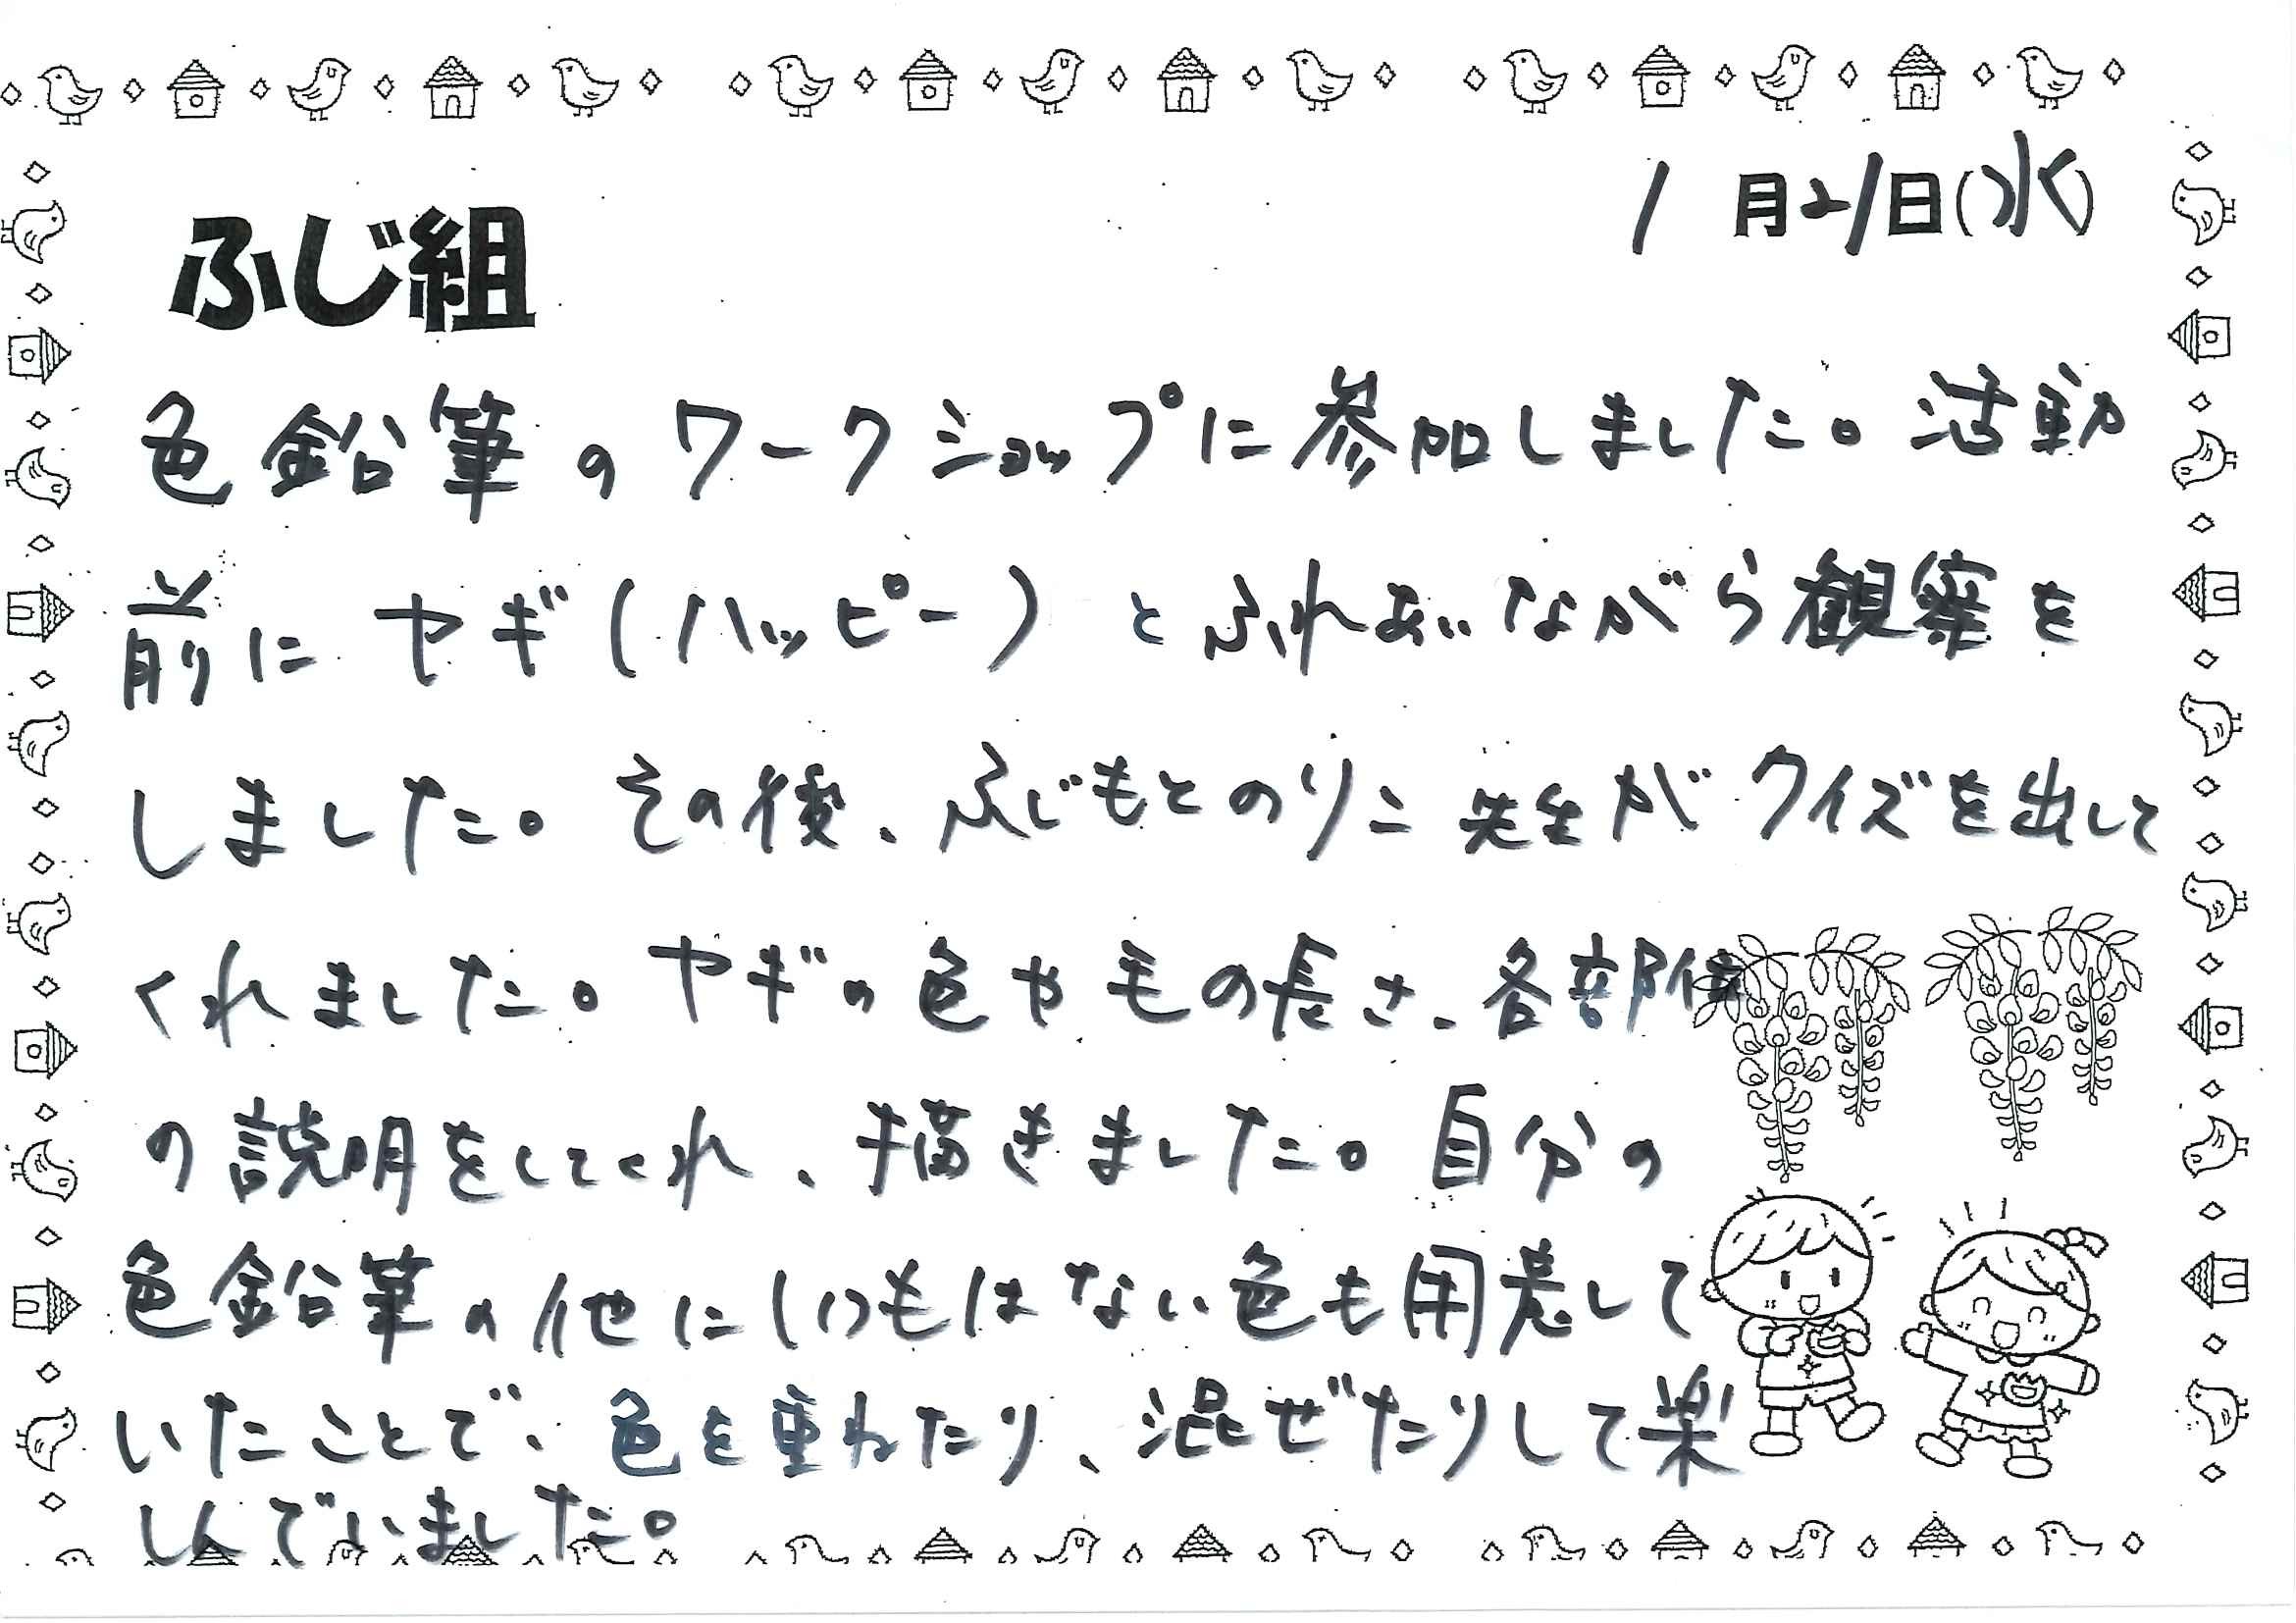 1月21日(水)
ふじ組
色鉛筆のワークショップに参加しました。活動
前にヤギ(ハッピー)とふれあいながら観察を
しました。その後、ふじもとのりこ先生がクイズを出して
くれました。ヤギの色や毛の長さ、各部位
の説明をしてくれ、描きました。自分の
色鉛筆の他にいつもはない色も用意して
いたことで、色を重ねたり、混ぜたりして楽
しんでいました。